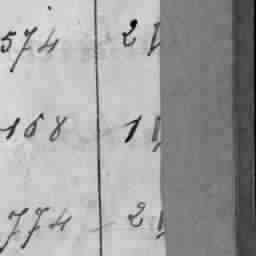 574 2
168 1
774 2